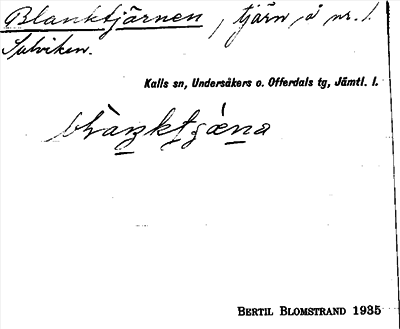 Blanktjärnen, tjärn, å nr. 1.
Salviken.
Kalls sn, Undersåkers o. Offerdals tg, Jämtl. l.
BERTIL BLOMSTRAND 1935